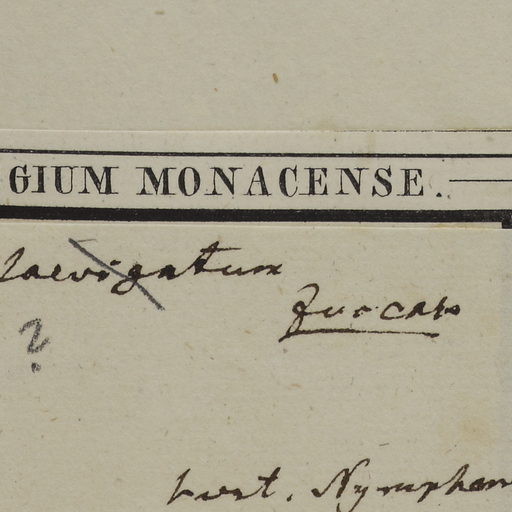 GIUM MONACENSE.
laevigatum
?
hort. Nymphen